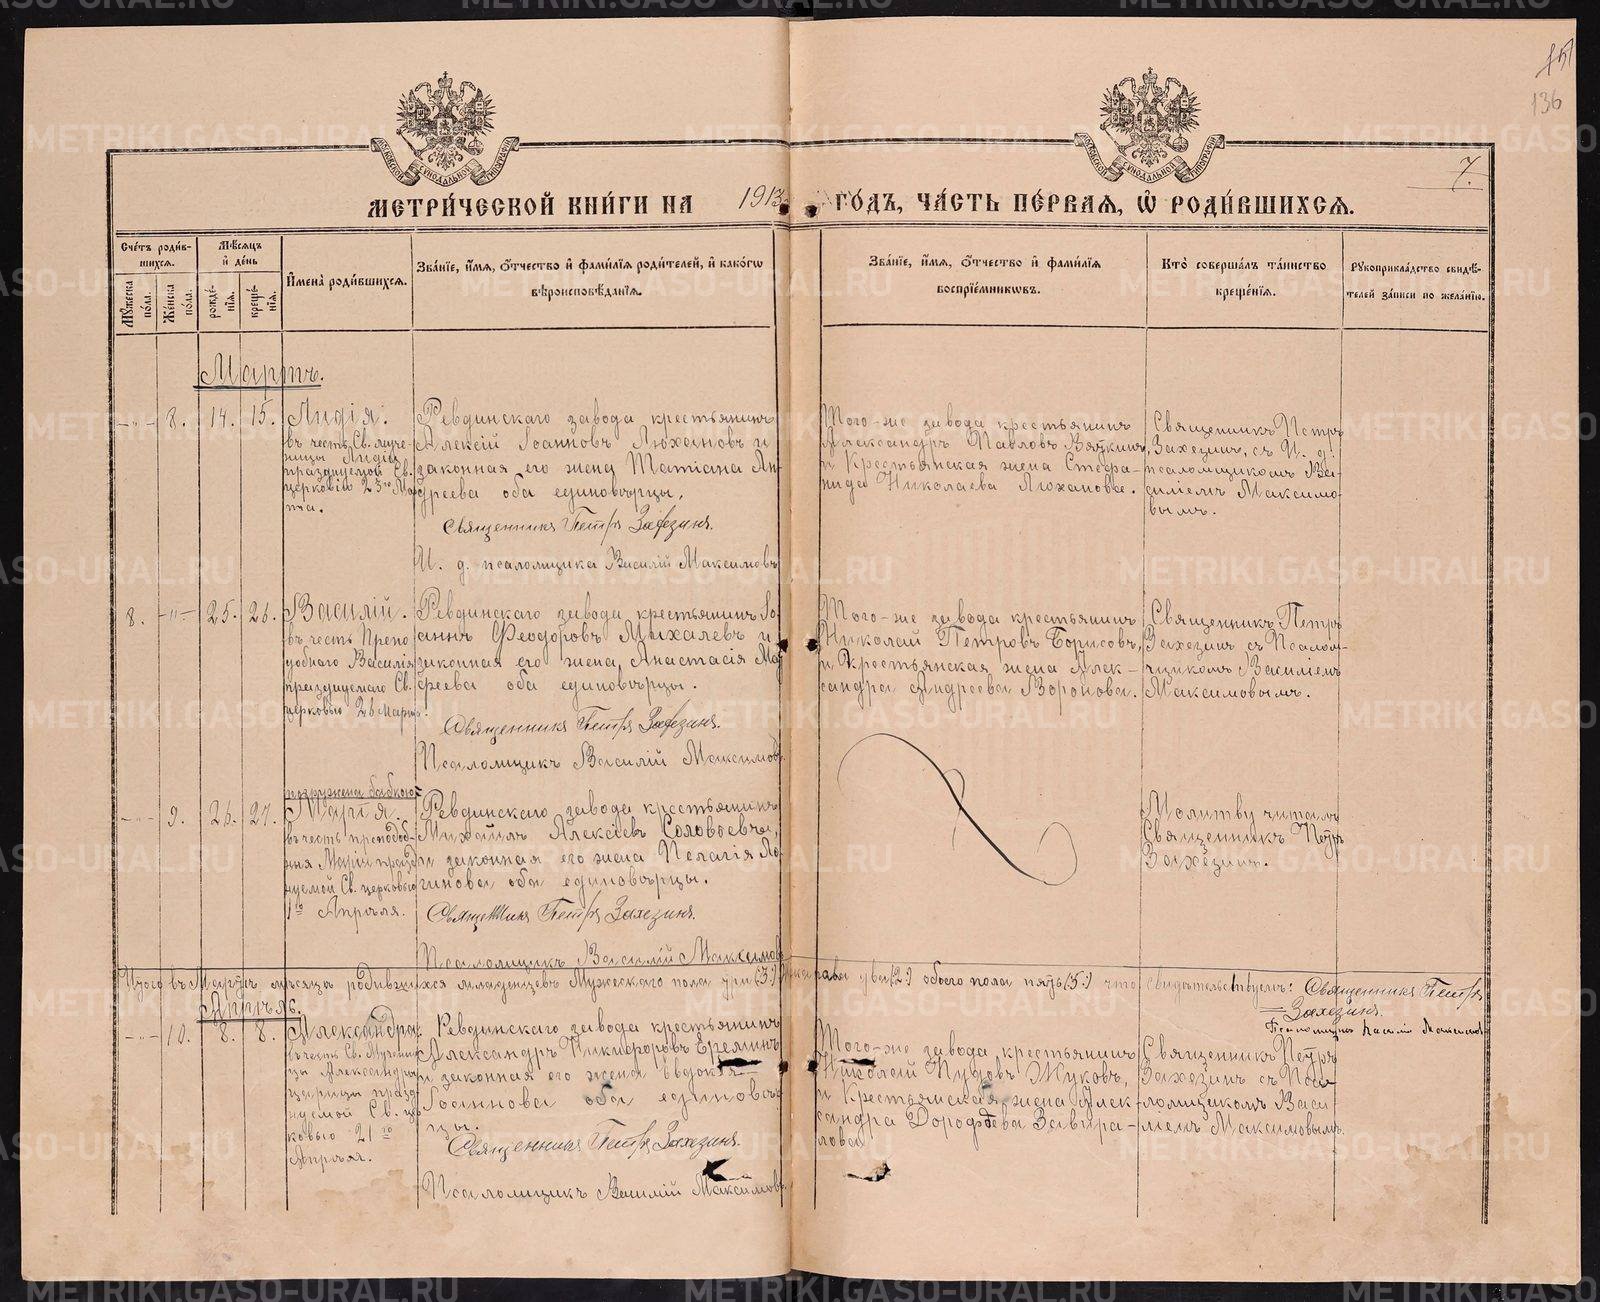 151
136
7.
МОСКОВСКОЙ СѴНОДАЛЬНОЙ ТИПОГРАФІИ
МОСКОВСКОЙ СѴНОДАЛЬНОЙ ТИПОГРАФІИ
МЕТРИ́ЧЕСКОЙ КНИ́ГИ НА 1913 ГО́ДЪ, ЧА́СТЬ ПЕ́РВАЯ, Ѿ РОДИ́ВШИХСЯ.
Сче́тъ роди́в-
шихся.
Му́жеска по́ла.
Же́нска по́ла.
Мѣ́сяцъ
и҆ де́нь
рожде́-
нїѧ.
креще́-
нїѧ.
И҆мена̀ роди́вшихся.
Зва́нїе, и҆́мѧ, ѻ҆́тчество и҆ фами́лїѧ роди́телей, и҆ како́гѡ
вѣроисповѣ́данїѧ.
Зва́нїе, и҆́мѧ, ѻ҆́тчество и҆ фами́лїѧ
воспрїе́мникѡвъ.
Кто̀ соверша́лъ та́инство
креще́нїѧ.
Рꙋкоприкла́дство свидѣ́-
телей за́писи по жела́нїю.
Мартъ.
-„- 8. 14. 15. Лидія.
въ честь Св. муче-
ницы Лидіи
празднуемой Св.
церковію 23го Мар-
та.
Ревдинскаго завода крестьянинъ
Алексій Іоанновъ Люхановъ и
законная его жена Татіана Ан-
дреева оба единовѣрцы.
Священникъ Петръ Захезинъ.
И. д. псаломщика Василій Максимовъ
Того-же завода крестьянинъ
Александръ Павловъ Вяткинъ,
и Крестьянская жена Стефа-
нида Николаева Люханова.
Священникъ Петръ
Захезинъ, съ И. д.
псаломщикомъ Ва-
силіемъ Максимо-
вымъ.
8. -„- 25. 26. Василій.
въ честь Препо
добнаго Василія
празднуемаго Св.
церковью 26 Марта.
Ревдинскаго завода крестьянинъ Іо-
аннъ Феодоровъ Михалевъ и
законная его жена, Анастасія Ма
ѳеева оба единовѣрцы.
Священникъ Петръ Захезинъ.
Псаломщикъ Василій Максимовъ
Того-же завода крестьянинъ
Николай Петровъ Борисовъ,
и Крестьянская жена Алек-
сандра Андреева Воронова.
Священникъ Петръ
Захезинъ съ Псалом-
щикомъ Василіемъ
Максимовымъ.
погружена бабкою
-„- 9. 26. 27. Марія.
въ честь преподоб-
ныя Маріи празд
нуемой Св. церковью
1го Апрѣля.
Ревдинскаго завода крестьянинъ
Михаилъ Алексѣевъ Соловьевъ,
и законная его жена Пелагія Ло
гинова оба единовѣрцы.
Священникъ Петръ Захезинъ.
Псаломщикъ Василій Максимовъ
Молитву читалъ
Священникъ Петръ
Захезинъ.
Итого въ Мартѣ мѣсяцѣ родившихся младенцевъ Мужескаго пола три (3.) два (2.) обоего пола пять (5.) что свидѣтельствуемъ: Священникъ Петръ
Захезинъ.
Псаломщикъ Василій Максимовъ
Апрѣль.
-„- 10. 8. 8. Александра
въ честь Св. Мучени
цы Александры
царицы празд
нуемой Св. це
ковью 21го
Апрѣля.
Ревдинскаго завода крестьянинъ
Александръ Никифоровъ Ереминъ
и законная его жена Евдокія
Іоаннова оба единовѣр
цы.
Священникъ Петръ Захезинъ.
Псаломщикъ Василій Максимовъ
Того-же завода, крестьянинъ
Николай Пудовъ Жуковъ,
и Крестьянская жена Алек-
сандра Дорофѣева Завира-
лова
Священникъ Петръ
Захезинъ съ Пса-
ломщикомъ Васи
ліемъ Максимовымъ.